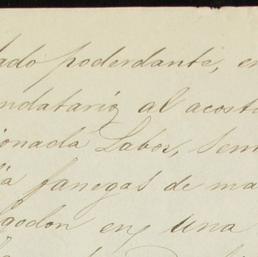 tado poderdante, en
ndatario al acostu
ionada Labor, sem
ia fanegas de ma
godon en una